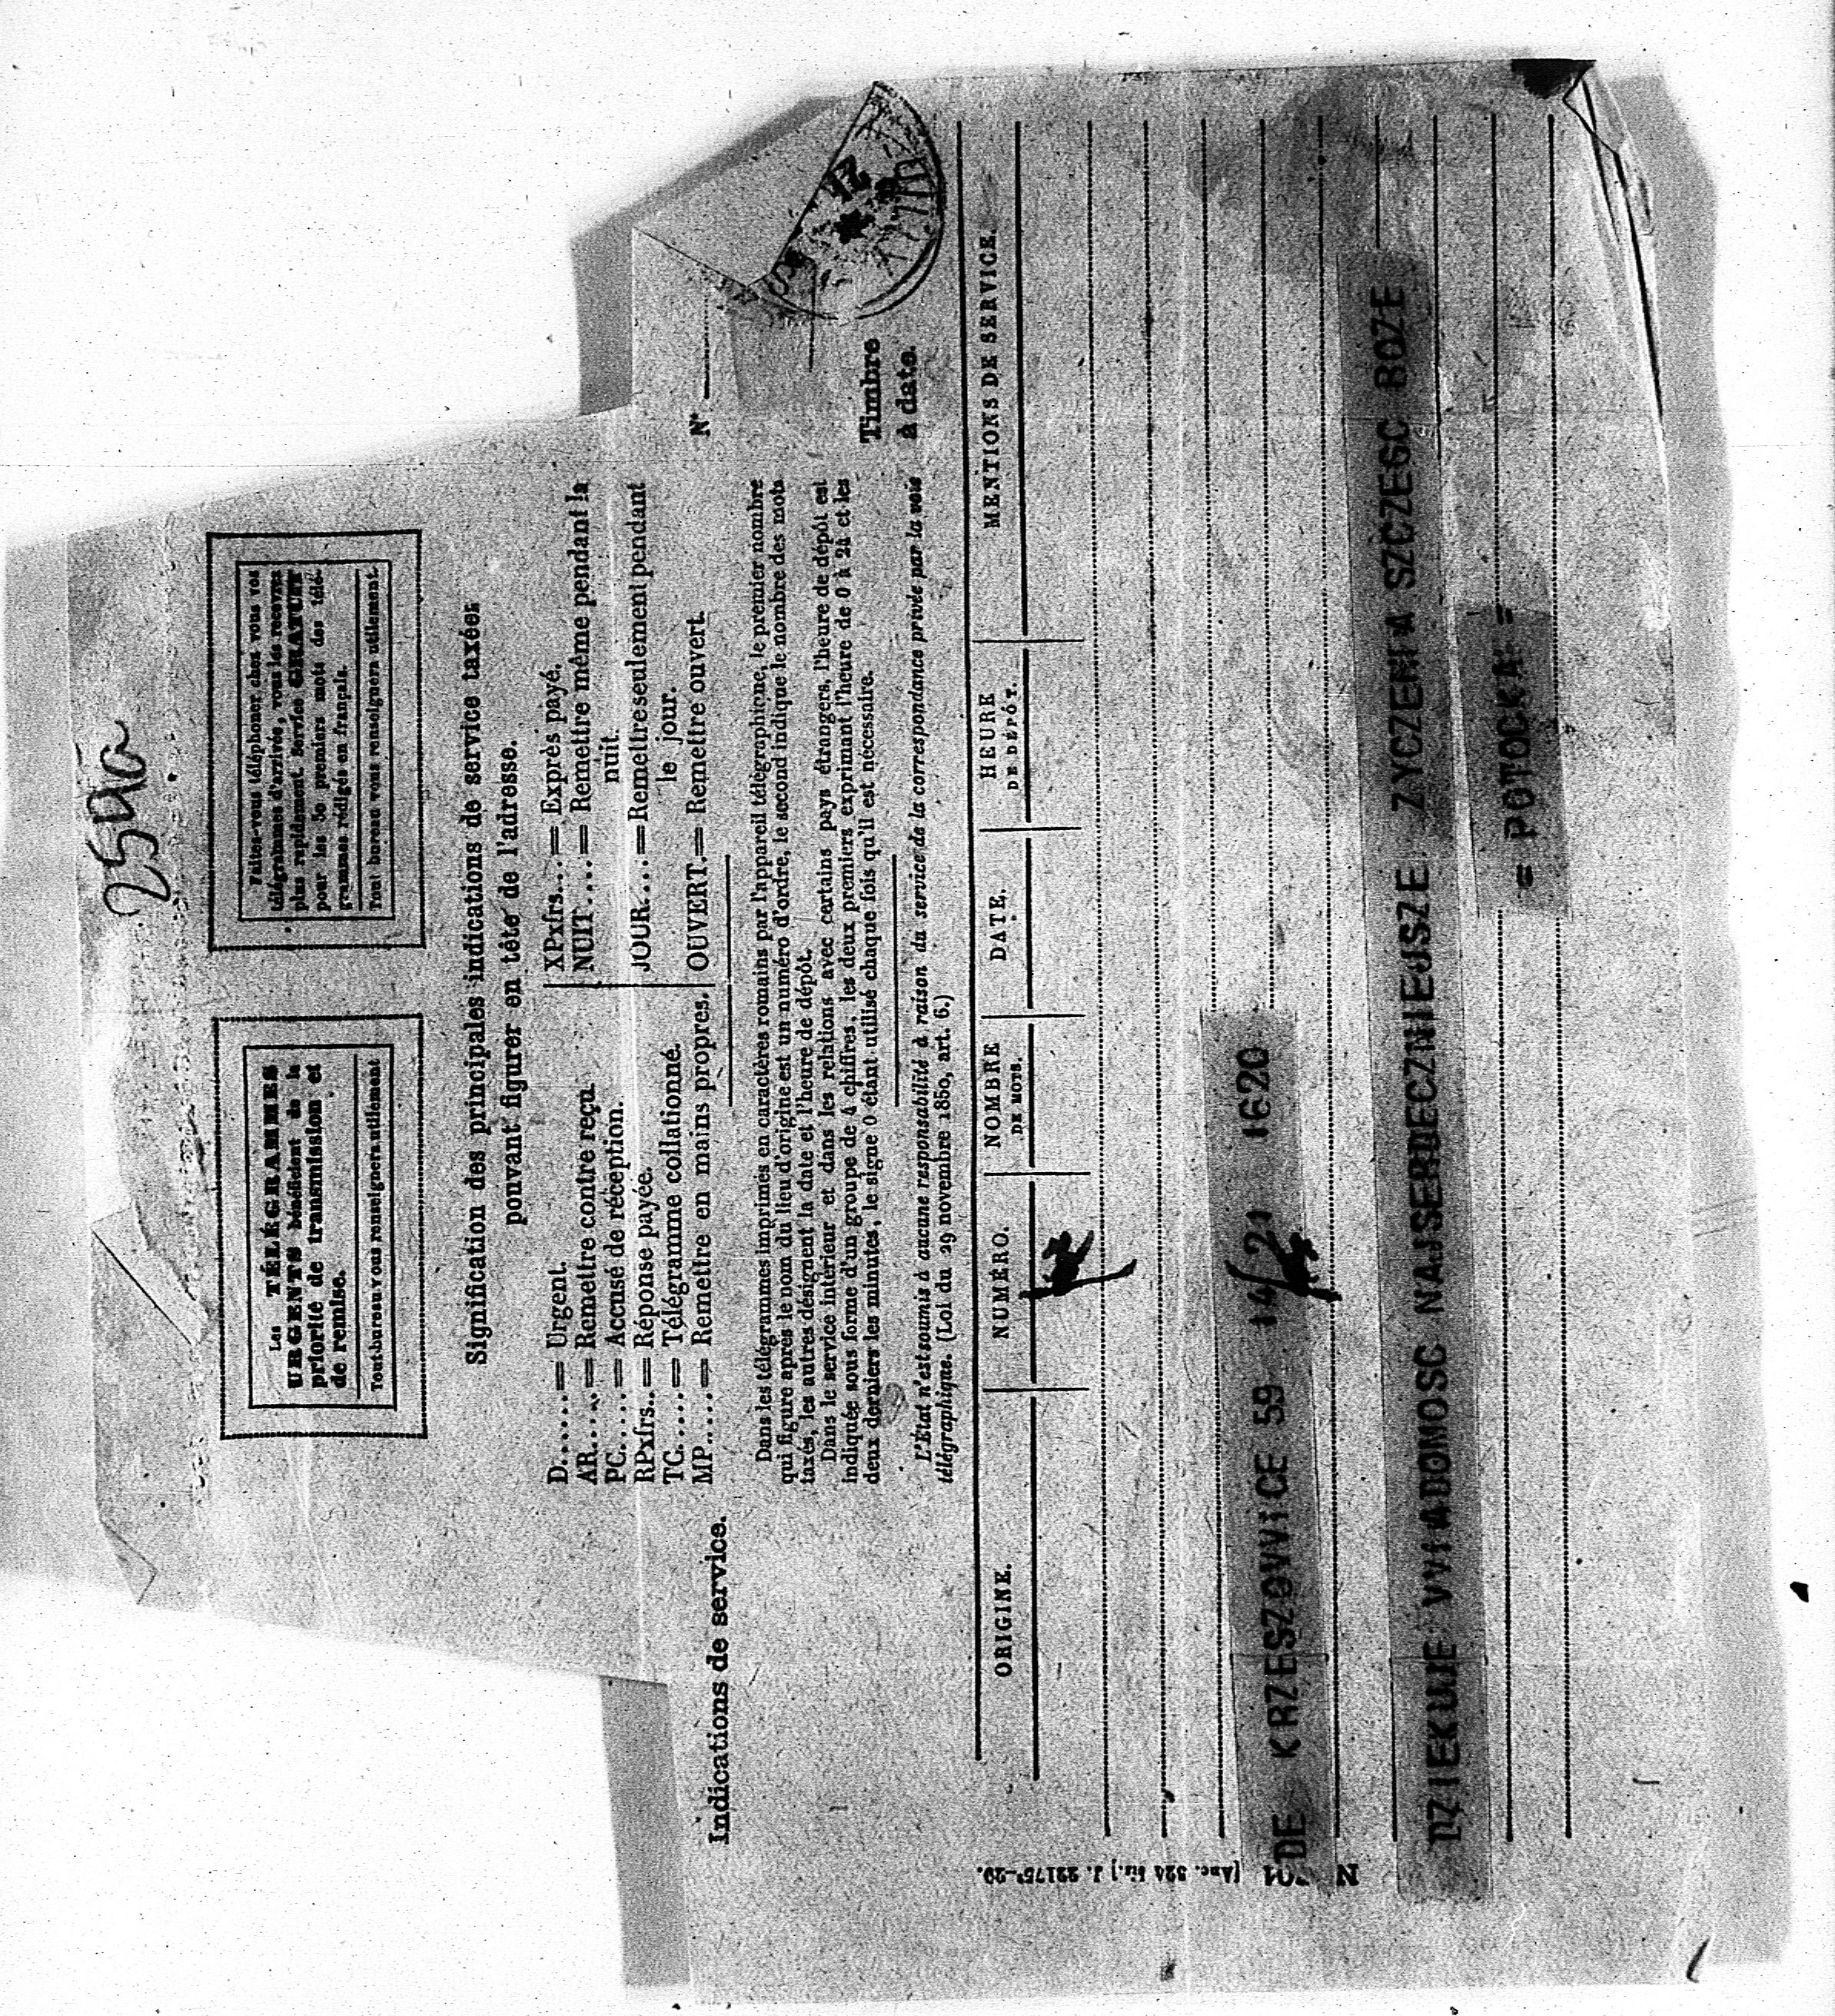 254a
Les TÉLÉGRAMMES
URGENTS bénéficient de la
priorité de transmission et
de remise.
Tout bureau vous renseignera utilement
Faites-vous téléphoner chez vous vos
télégrammes d'arrivée, vous les recevrez
plus rapidement. Service GRATUIT
pour les 50 premiers mots des télé-
grammes rédigés en français.
Tout bureau vous renseignera utilement.
Signification des principales indications de service taxées
pouvant figurer en tête de l'adresse.
Indications de service.
D...... = Urgent.
AR..... = Remettre contre reçu.
PC..... = Accusé de réception.
RPxfrs.. = Réponse payée.
TC..... = Télégramme collationné.
MP..... = Remettre en mains propres.
XPxfrs... = Exprès payé.
NUIT.... = Remettre même pendant la
nuit.
JOUR.... = Remettre seulement pendant
le jour.
OUVERT. = Remettre ouvert.
N°
Timbre
à date.
Dans les télégrammes imprimés en caractères romains par l'appareil télégraphique, le premier nombre
qui figure après le nom du lieu d'origine est un numéro d'ordre, le second indique le nombre des mots
taxés, les autres désignent la date et l'heure de dépôt.
Dans le service intérieur et dans les relations avec certains pays étrangers, l'heure de dépôt est
indiquée sous forme d'un groupe de 4 chiffres, les deux premiers exprimant l'heure de 0 à 24 et les
deux derniers les minutes, le signe 0 étant utilisé chaque fois qu'il est nécessaire.
L'État n'est soumis à aucune responsabilité à raison du service de la correspondance privée par la voie
télégraphique. (Loi du 29 novembre 1850, art. 6.)
ORIGINE.
NUMÉRO.
NOMBRE
DE MOTS.
DATE.
HEURE
DE DÉPÔT.
MENTIONS DE SERVICE.
DE KRZESZOVVICE 59 14/21 1620
DZIEKUJE VVIADOMOSC NAJSERDECZNIEJSZE ZYCZENIA SZCZEGC BOZE
= POTOCKA =